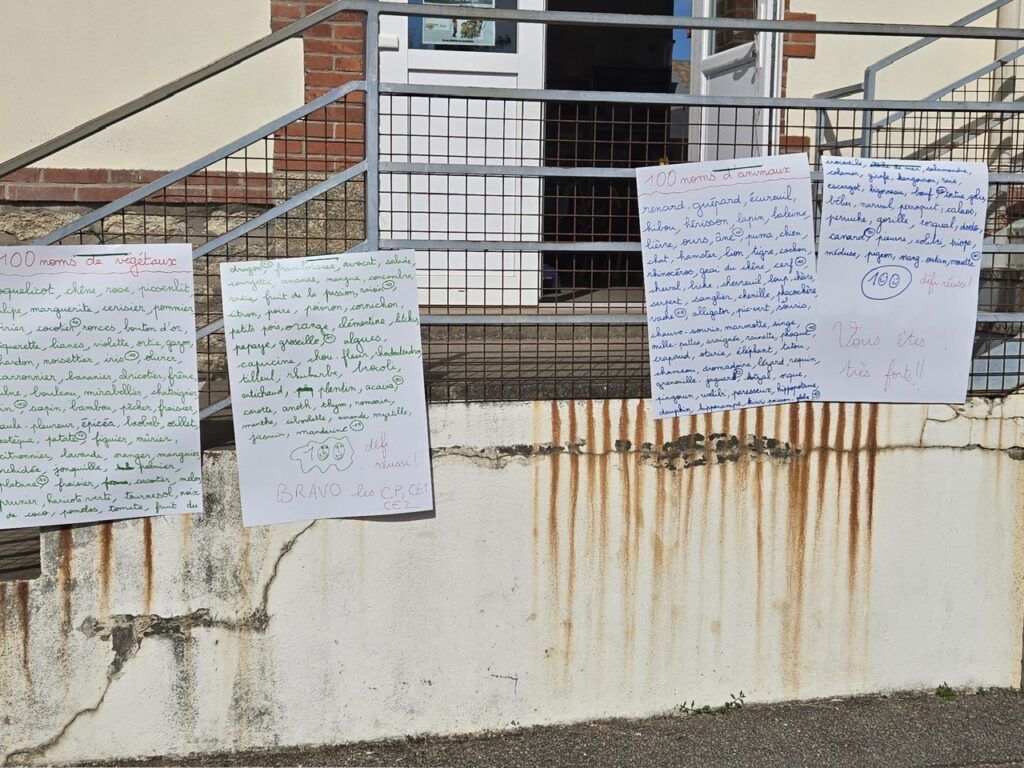 100 noms de végétaux
oquelicot, chêne, rose, pissenlit
marguerite, cerisier, pommier
cocotier ronces, bouton d'or
querette, lianes, violette, ortie, gazon,
hardon, noisetier, iris olivier,
marronnier, bananier, abricotier, frêne
bouleau, mirabellier, châtaignier
sapin, bambou, pêcher, fraisier
aule, pleureur, épicéa, baobab, œillet
patate figuier, mûrier,
citronnier, lavande, oranger, manguier
orchidée, jonquille, palmier,
platane fraisier, cacaotier, melon
prunier, haricot verts, tournesol, noix
de coco, pomelos, tomate, fruit du
dragon framboisier, avocat, salade
courgette, ananas, mangue, concombre
radis, fruit de la passion, raisin
citron, poire, poivron, cornichon,
petits pois, orange, clémentine, litchis
papaye, groseille algues,
capucine, chou-fleur, rhododendron
tilleul, rhubarbe, brocoli,
artichaud, plantain, acacia
carotte, aneth, thym, romarin,
menthe, ciboulette, amande, myrtille,
jasmin, mandarine
100
défi
réussi!
BRAVO les CP, CE1
CE2
100 noms d'animaux
renard, guépard, écureuil,
hibou, hérisson, lapin, baleine,
lièvre, ours, âne, puma, chien
chat, hamster, lion, tigre, cochon,
rhinocéros, geai du chêne, cerf
cheval, biche, chevreuil, loup, chèvre
serpent, sanglier, chenille, phacochère
vache alligator, pic-vert, souris,
chauve-souris, marmotte, singe,
mille-pattes, araignée, rainette, phoque
crapaud, otarie, éléphant, tatou,
chameau, dromadaire, lézard, requin,
grenouille, jaguard, orque,
pingouin, paresseux, hippopotame,
dauphin, hippocampe,
crocodile, étoile de mer, salamandre,
calamar, girafe, kangourou, raie,
escargot, bigorneau, bœuf tortue,
bélier, narval, perroquet, calaos,
perruche, gorille, rorqual, dodo,
canard, pieuvre, colibri, biope,
méduse, pigeon, orang-outan, mouette
100 défi réussi!
Vous êtes
très forts!!